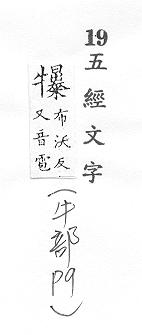 19五經文字
犦布沃反
又音雹
(牛部P9)